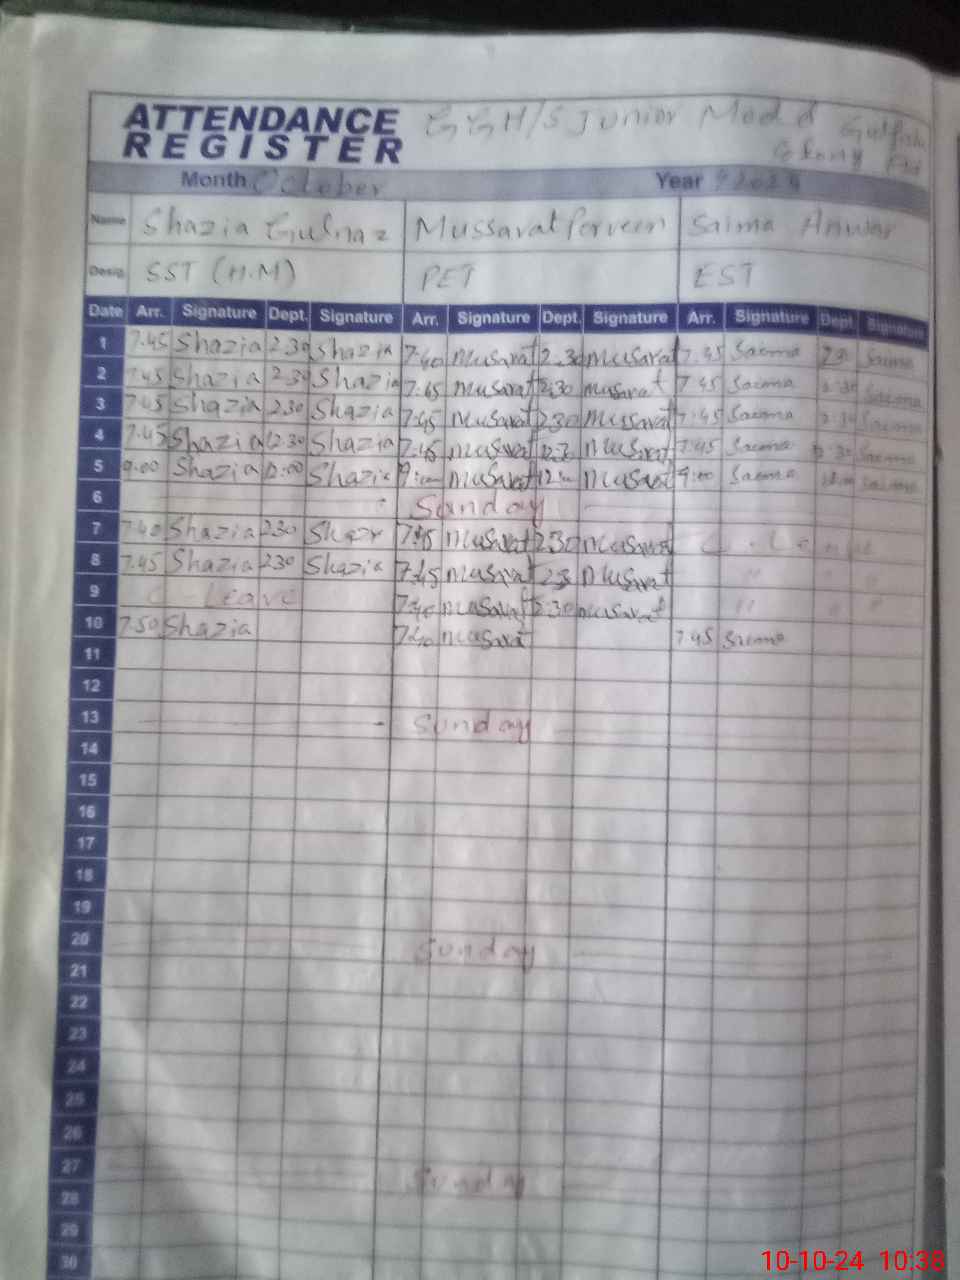 ATTENDANCE GGH/S Junior Mod
REGISTER
Month October Year 2024
Name Shazia Gulnaz Mussarat Perveen Saima Anwar
Desig. SST (H.M) PET EST
Date Arr. Signature Dept. Signature Arr. Signature Dept. Signature Arr. Signature Dept. Signature
1 7.45 Shazia 2.30 Shazia 7.40 Musarat 2.30 Musarat 7.45 Saima Saima
2 7.45 Shazia 2.30 Shazia 7.45 Musarat 2.30 musarat 7.45 Saima 2.30 Saima
3 7.45 Shazia 2.30 Shazia 7.45 Musarat 2.30 Mussarat 7.45 Saima 2.30 Saima
4 7.45 Shazia 12.30 Shazia 7.45 Musarat 12.30 Musarat 7.45 Saima 12.30 Saima
5 9.00 Shazia 12.00 Shazia 9:00 Musarat 12:00 Musarat 9:00 Saima Saima
6 Sunday
7 7.40 Shazia 2.30 Shazia 7.45 Musarat 2.30 Musarat
8 7.45 Shazia 2.30 Shazia 7.45 Musarat 2.3 Musarat " " "
9 C Leave 7.40 Musarat 2.30 Musarat " " "
10 7.50 Shazia 7.40 Musarat 7.45 Saima
11
12
13 Sunday
14
15
16
17
18
19
20 Sunday
21
22
23
24
25
26
27 Sunday
28
29
30
10-10-24 10:38